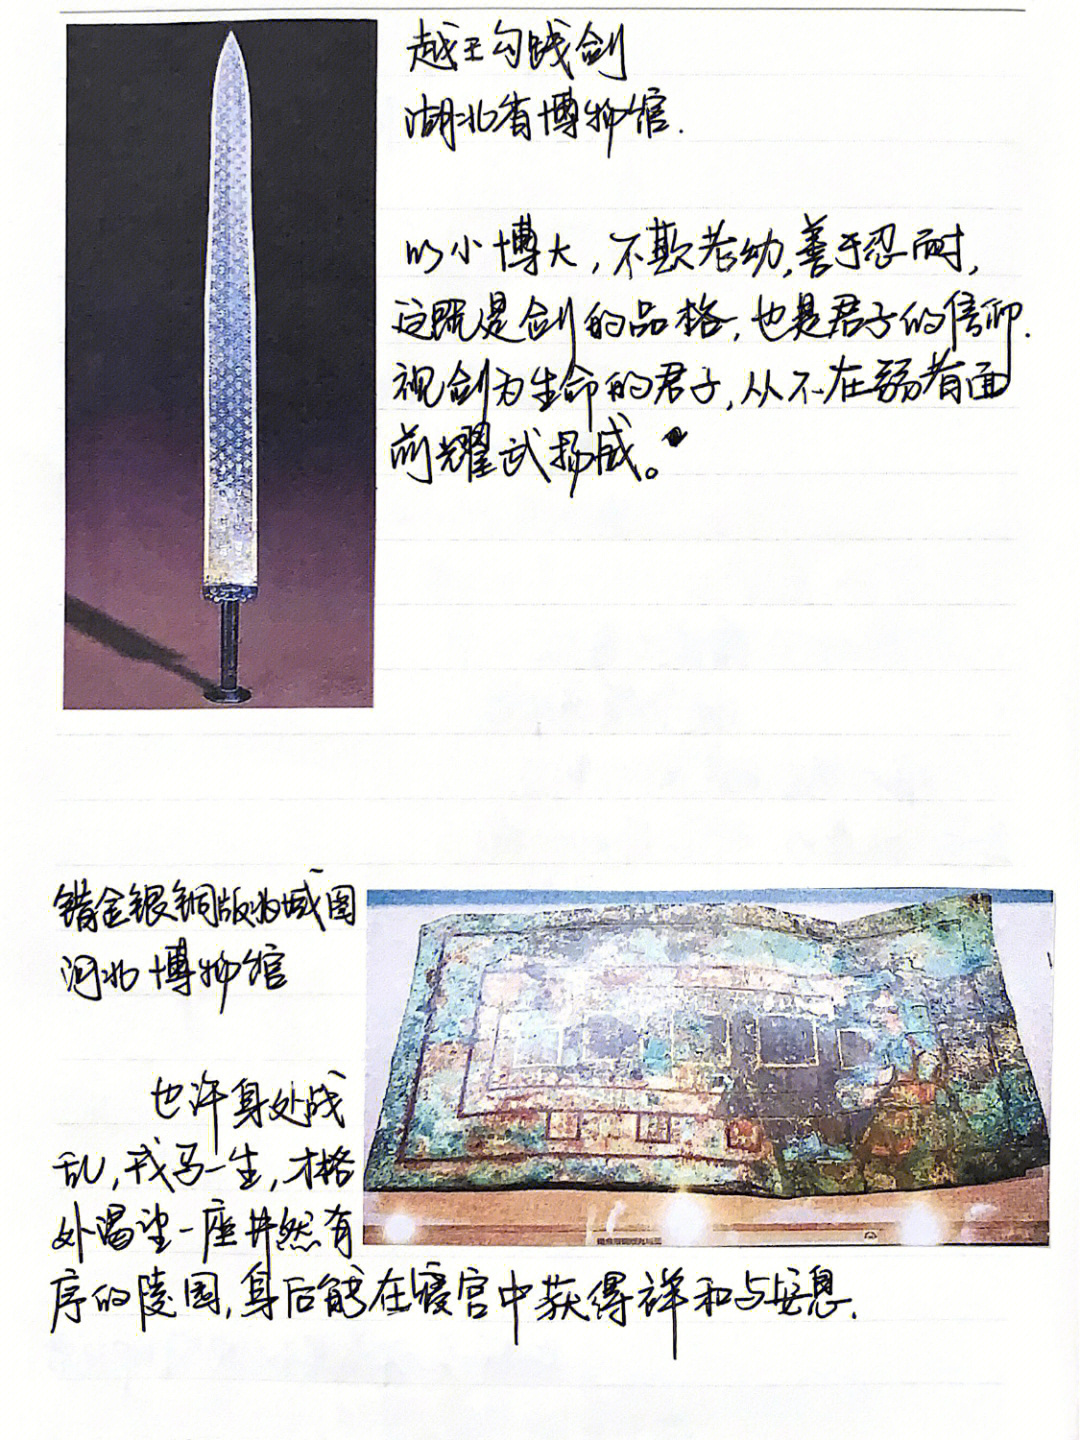 越王勾践剑
湖北省博物馆.
以小博大,不欺老幼,善于忍耐,
这既是剑的品格,也是君子的信仰.
视剑为生命的君子,从不在弱者面
前耀武扬威。
错金银铜版兆域图
河北博物馆
也许身处战
乱,戎马一生,才格
外渴望一座井然有
序的陵园,身后能在寝宫中获得祥和与安息.